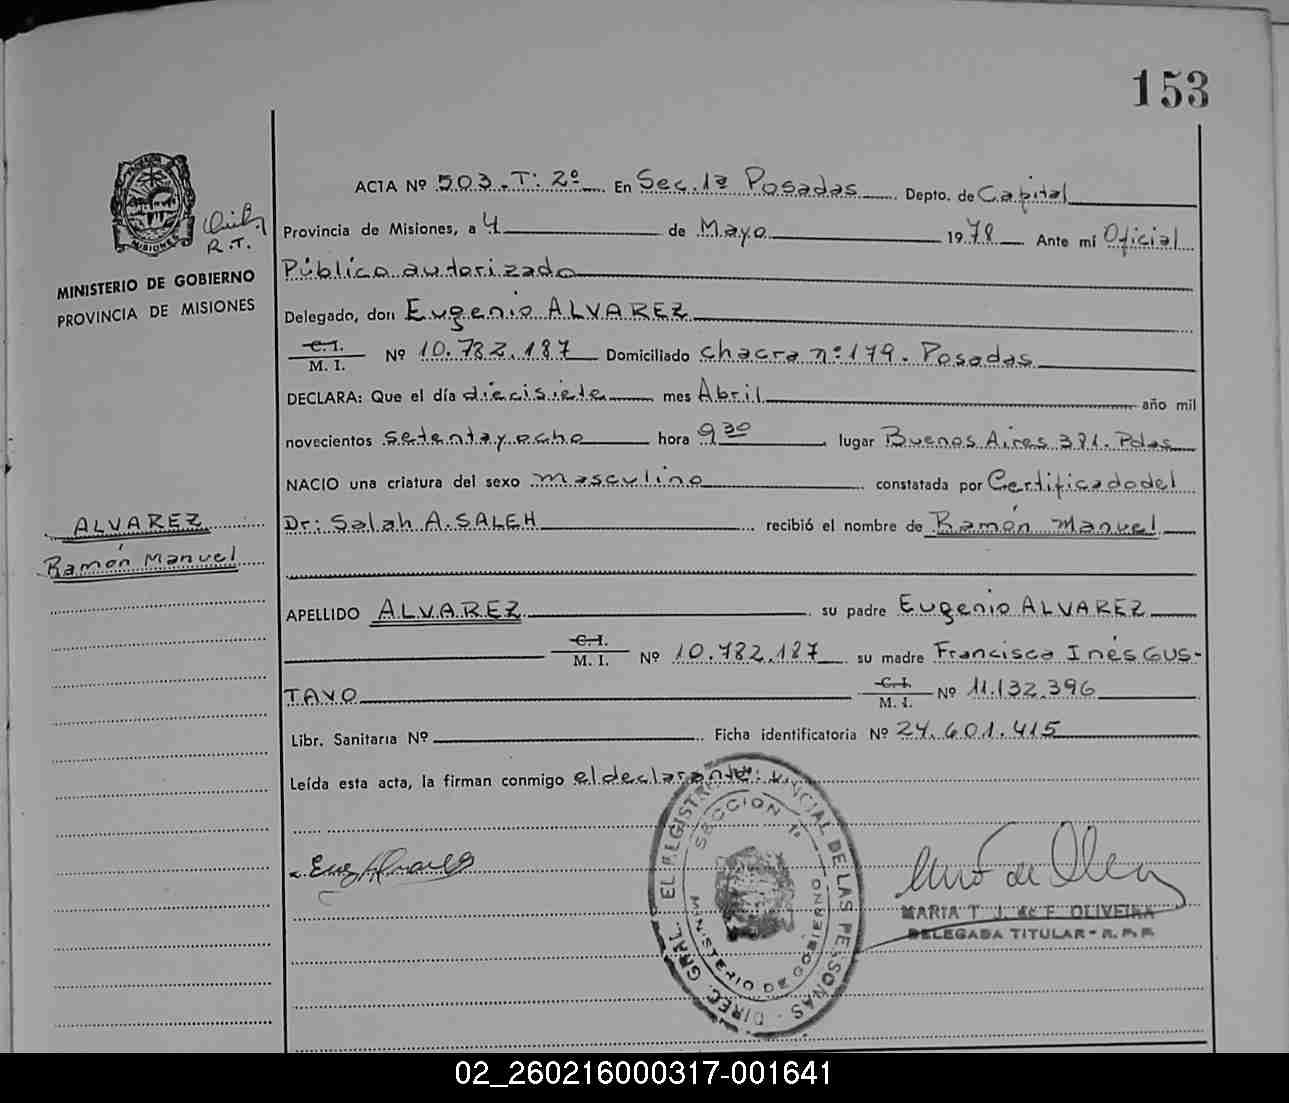 153
ACTA Nº 503. T: 2º En Sec. 1ª Posadas Depto. de Capital
R. T.
Provincia de Misiones, a 4 de Mayo 1978 Ante mí Oficial
MINISTERIO DE GOBIERNO
PROVINCIA DE MISIONES
Público autorizado
Delegado, don Eugenio ALVAREZ
C. I.
M. I. Nº 10.782.187 Domiciliado chacra nº 179. Posadas
DECLARA: Que el día diecisiete mes Abril año mil
novecientos setenta y ocho hora 9 30 lugar Buenos Aires 381. Pdas
NACIO una criatura del sexo masculino constatada por Certificado del
ALVAREZ
Ramón Manuel
Dr: Salah A. SALEH recibió el nombre de Ramón Manuel
APELLIDO ALVAREZ su padre Eugenio ALVAREZ
C. I.
M. I. Nº 10.782.187 su madre Francisca Inés GUS-
TAVO C. I.
M. I. Nº 11.132.396
Libr. Sanitaria Nº Ficha identificatoria Nº 24.601.415
Leída esta acta, la firman conmigo el declarante:
DIREC. GRAL. EL REGISTRO PROVINCIAL DE LAS PERSONAS
SECCION 1ª
MINISTERIO DE GOBIERNO
MARIA T. J. de F. OLIVEIRA
DELEGADA TITULAR - R. P. P.
02_260216000317-001641